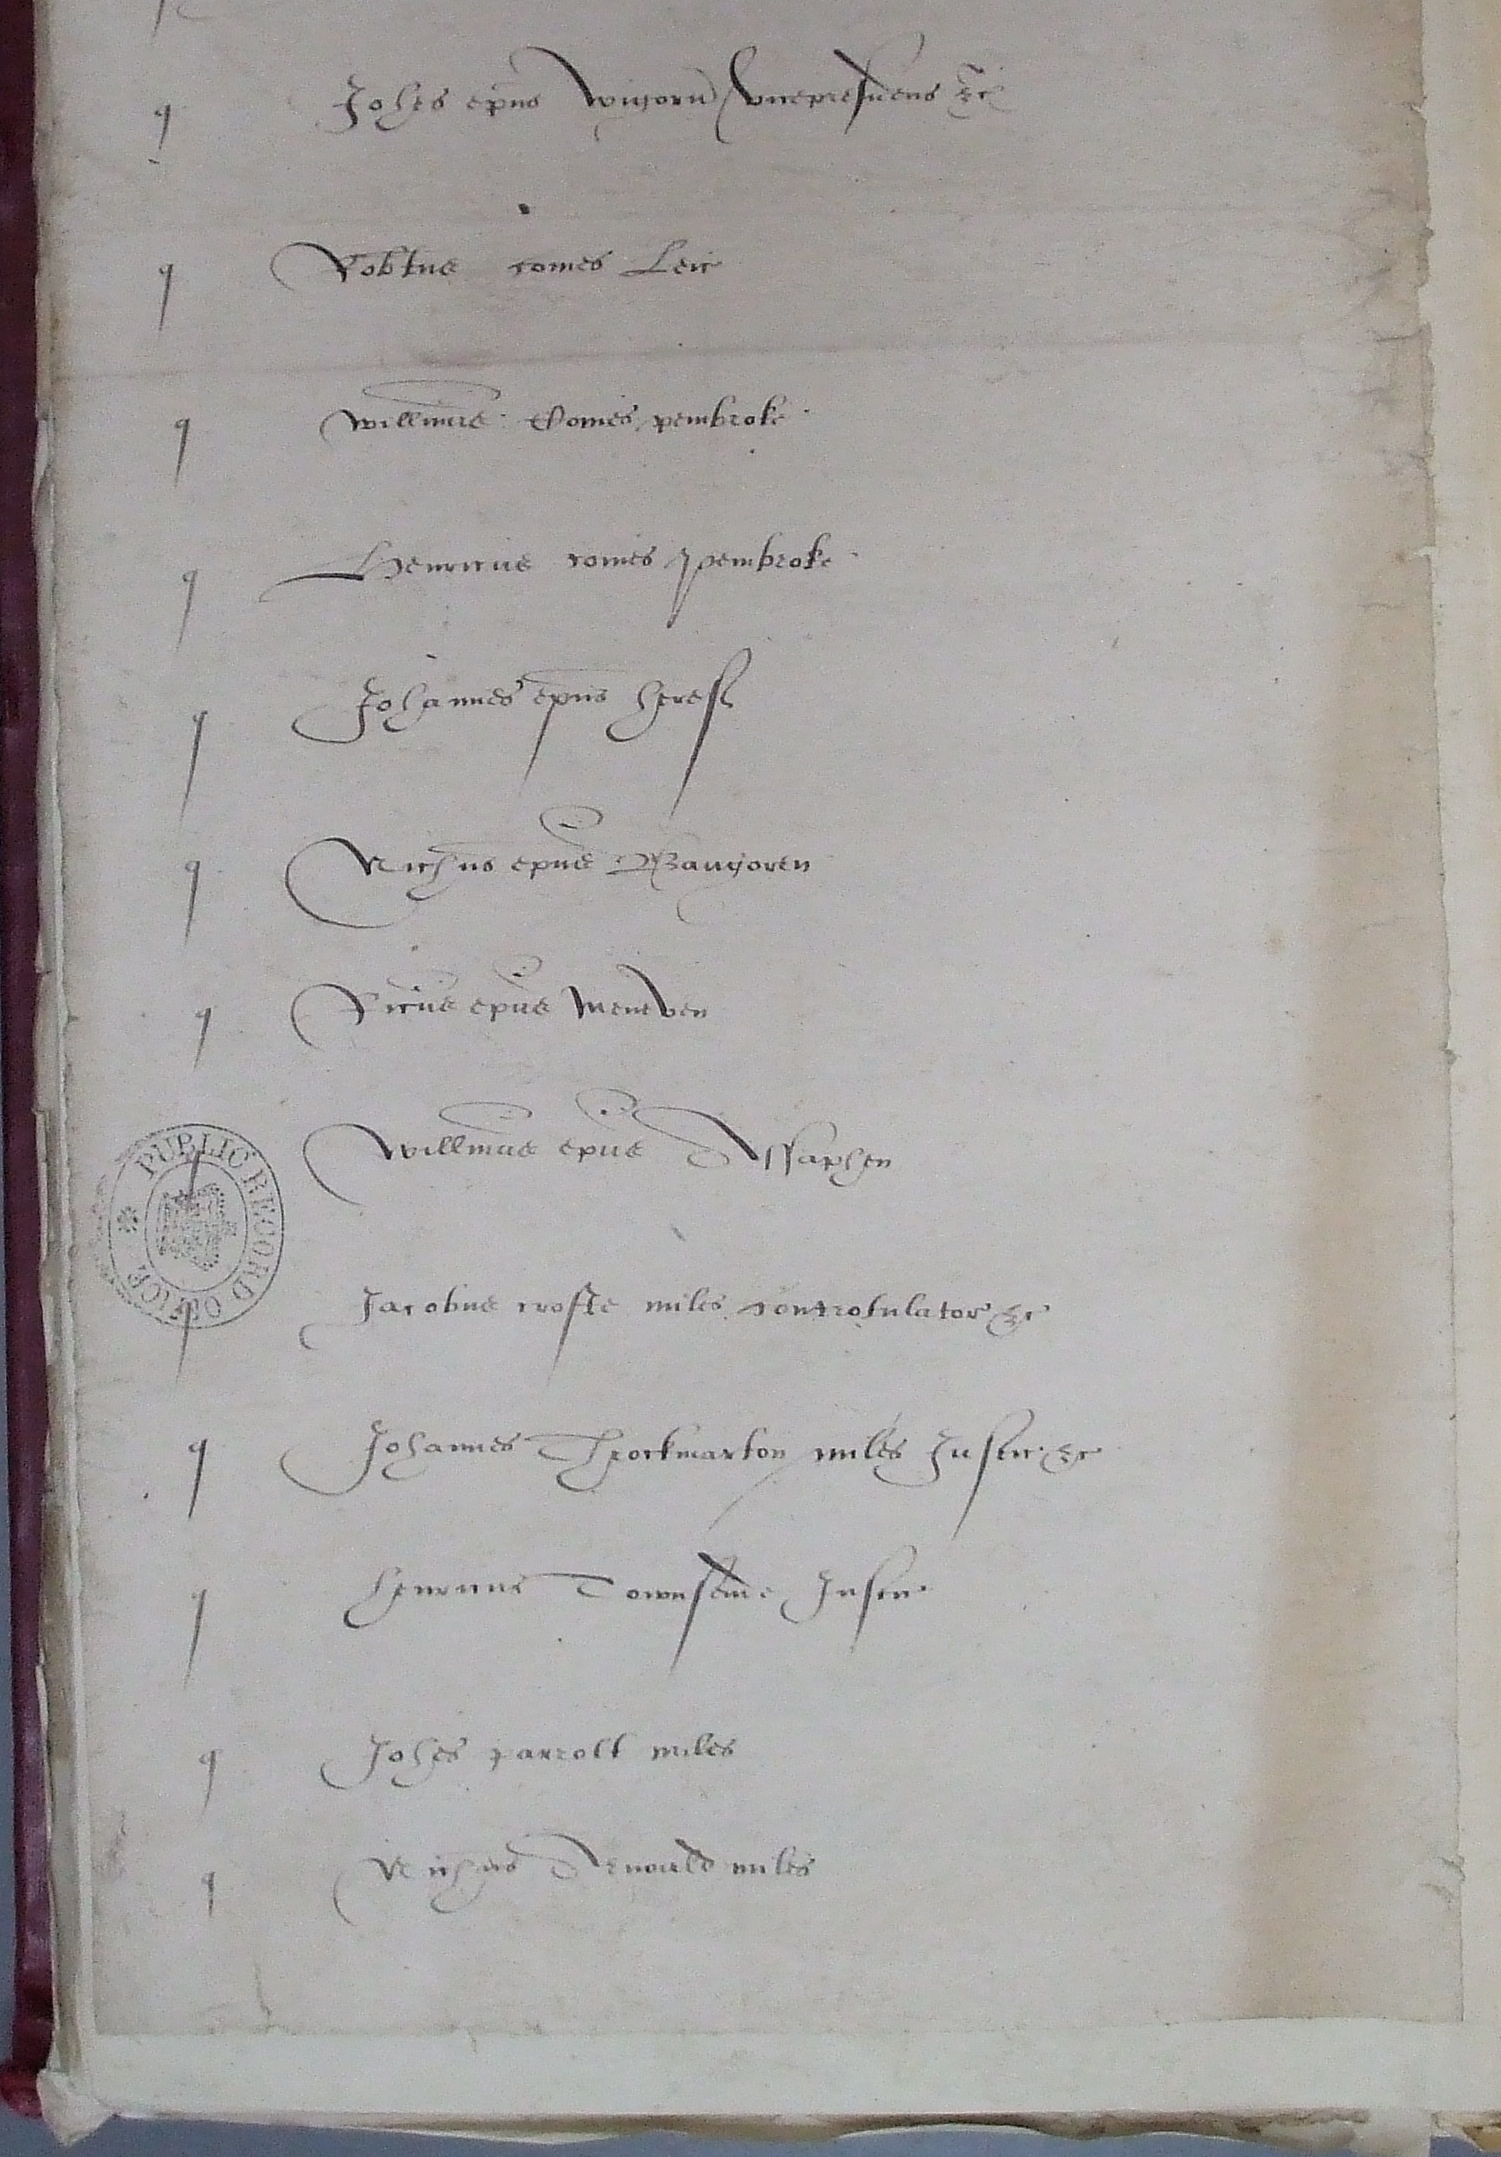 q Johes epus Wigorn vicepresidens &c
q Robtus comes Leic
q Willmus Comes pembroke
q Henricus comes pembroke
q Johannes epus heref
q Nichus epus Bangoren
q Ricus epus Meneven
Willmus epus Assaphen
PUBLIC RECORD OFFICE
q Jacobus crofte miles controtulator &c
q Johannes Throckmarton miles Justic &c
q henricus Townsend Justic
q Johes parrott miles
q Nichus Arnauld miles